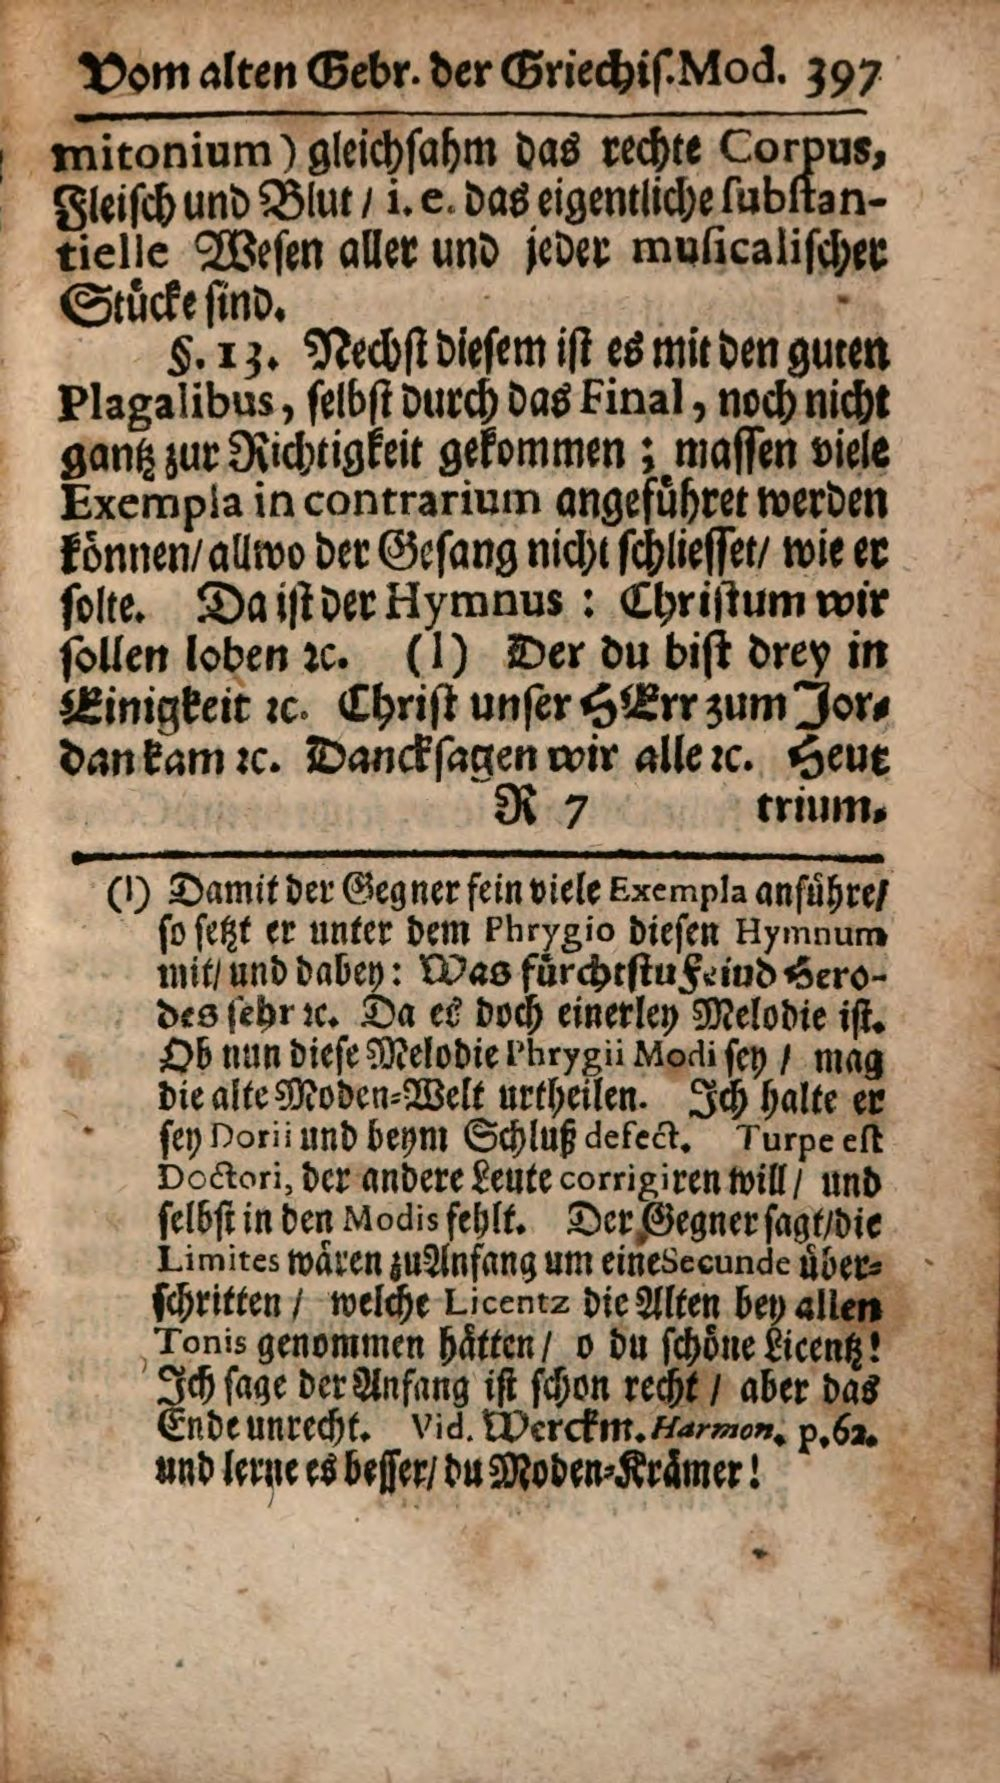 Vom alten Gebr. der Griechis. Mod. 397
mitonium) gleichsahm das rechte Corpus,
Fleisch und Blut / i. e. das eigentliche substan-
tielle Wesen aller und jeder musicalischer
Stücke sind.
§. 13. Nechst diesem ist es mit den guten
Plagalibus, selbst durch das Final, noch nicht
gantz zur Richtigkeit gekommen; massen viele
Exempla in contrarium angeführet werden
können/ allwo der Gesang nicht schliesset/ wie er
solte. Da ist der Hymnus: Christum wir
sollen loben ꝛc. (l) Der du bist drey in
Einigkeit ꝛc. Christ unser HErr zum Jor-
dan kam ꝛc. Dancksagen wir alle ꝛc. Heut
R 7 trium-
(l) Damit der Gegner fein viele Exempla anführe/
so setzt er unter dem Phrygio diesen Hymnum
mit/ und dabey: Was fürchtstu Feind Hero-
des sehr ꝛc. Da es doch einerley Melodie ist.
Ob nun diese Melodie Phrygii Modi sey / mag
die alte Moden-Welt urtheilen. Ich halte er
sey Dorii und beym Schluß defect. Turpe est
Doctori, der andere Leute corrigiren will / und
selbst in den Modis fehlt. Der Gegner sagt/ die
Limites wären zu Anfang um eine Secunde über-
schritten / welche Licentz die Alten bey allen
Tonis genommen hätten / o du schöne Licentz!
Ich sage der Anfang ist schon recht / aber das
Ende unrecht. Vid. Werckm. Harmon. p. 62.
und lerne es besser/ du Moden-Krämer!